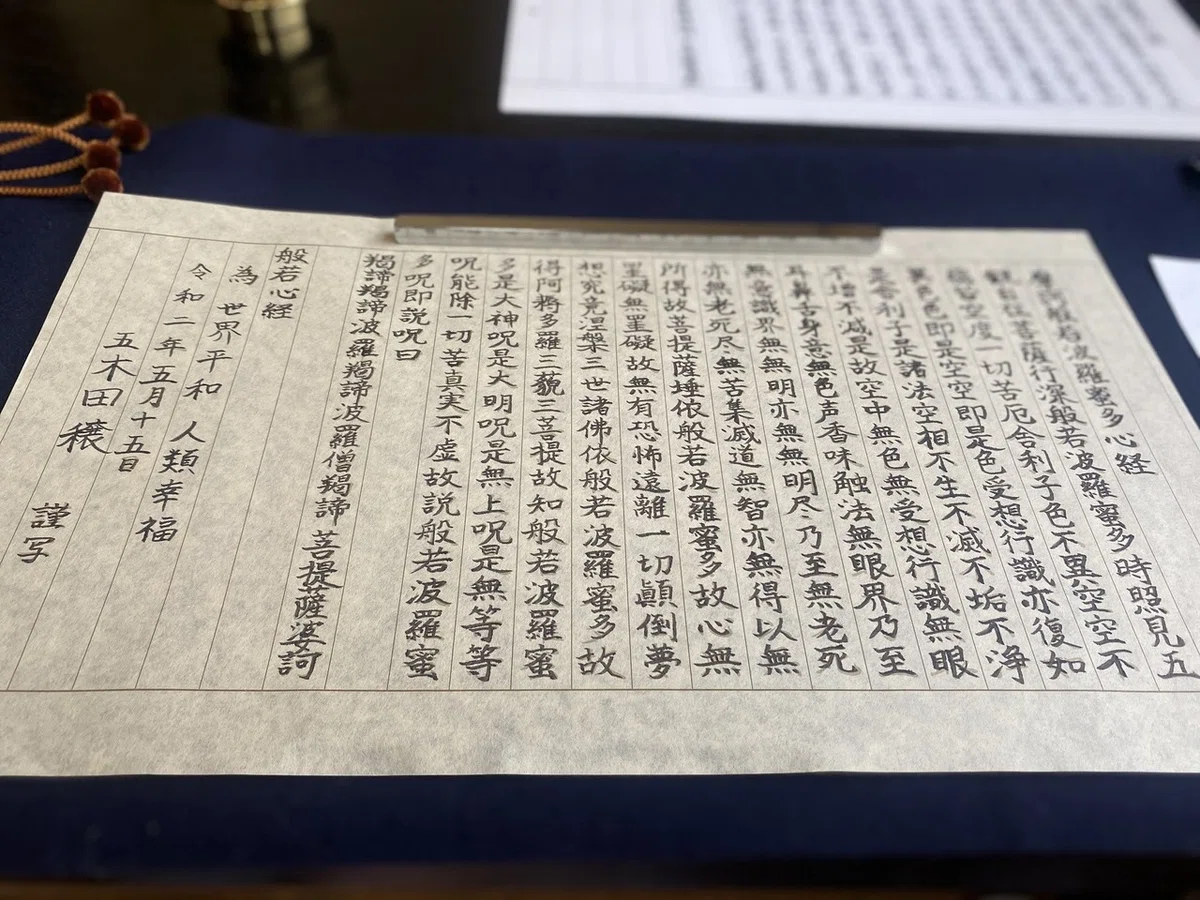 摩訶般若波羅蜜多心経
観自在菩薩行深般若波羅蜜多時照見五
蘊皆空度一切苦厄舎利子色不異空空不
異色色即是空空即是色受想行識亦復如
是舎利子是諸法空相不生不滅不垢不浄
不増不減是故空中無色無受想行識無眼
耳鼻舌身意無色声香味触法無眼界乃至
無意識界無無明亦無無明尽乃至無老死
亦無老死尽無苦集滅道無智亦無得以無
所得故菩提薩埵依般若波羅蜜多故心無
罣礙無罣礙故無有恐怖遠離一切顛倒夢
想究竟涅槃三世諸佛依般若波羅蜜多故
得阿耨多羅三藐三菩提故知般若波羅蜜
多是大神呪是大明呪是無上呪是無等等
呪能除一切苦真実不虚故説般若波羅蜜
多呪即説呪曰
羯諦羯諦波羅羯諦波羅僧羯諦 菩提薩婆訶
般若心経
為 世界平和 人類幸福
令和二年五月十五日
五木田穣 謹写